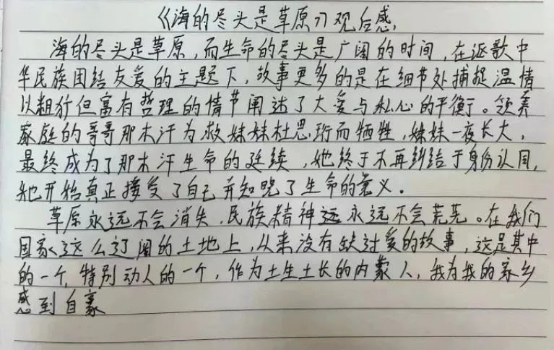 《海的尽头是草原》观后感
海的尽头是草原,而生命的尽头是广阔的时间,在讴歌中
华民族团结友爱的主题下,故事更多的是在细节处捕捉温情
以粗犷但富有哲理的情节阐述了大爱与私心的平衡。领养
家庭的哥哥那木汗为救妹妹杜思珩而牺牲,妹妹一夜长大,
最终成为了那木汗生命的延续,她终于不再纠结于身份认同,
她开始真正接受了自己并知晓了生命的意义。
草原永远不会消失,民族精神远永远不会荒芜。在我们
国家这么辽阔的土地上,从来没有缺过爱的故事,这是其中
的一个,特别动人的一个,作为土生土长的内蒙人,我为我的家乡
感到自豪